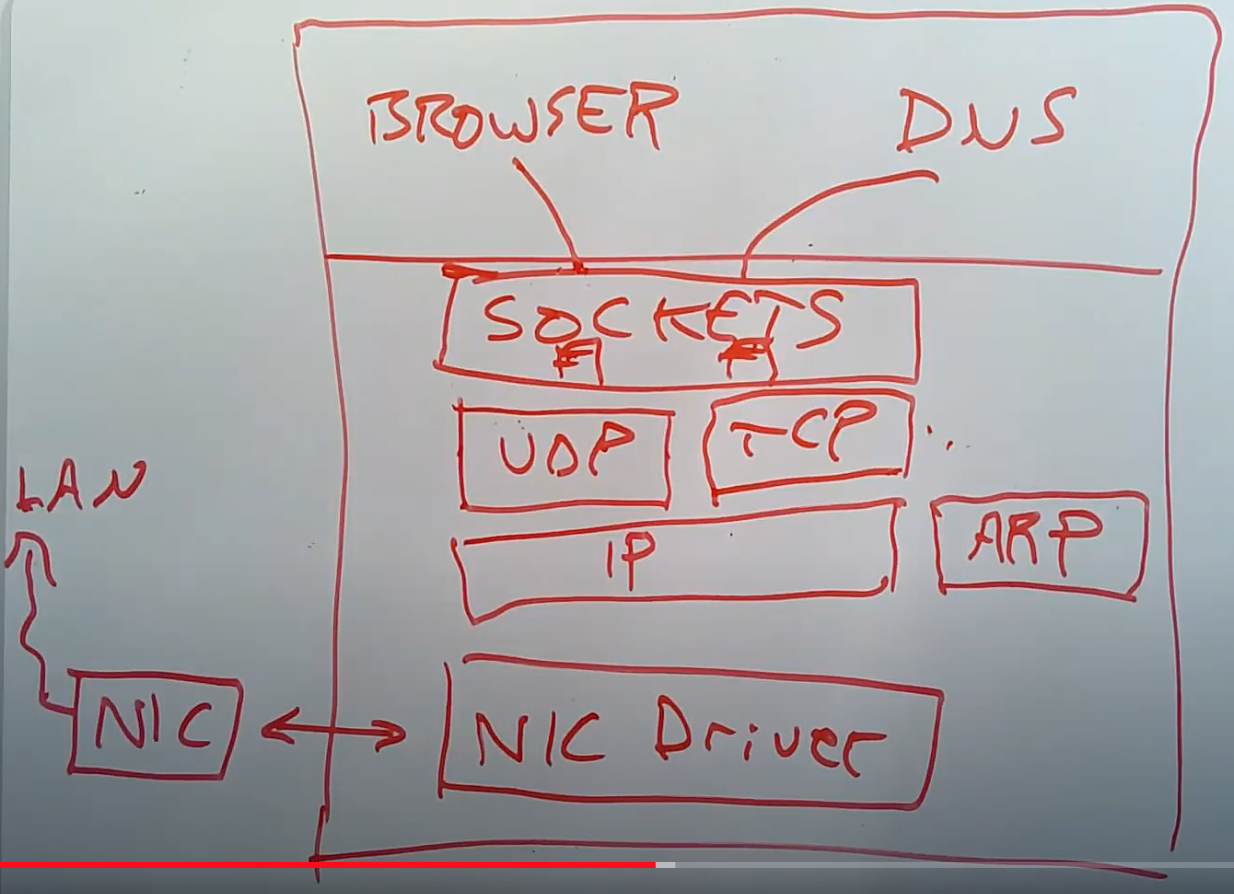 BROWSER
DNS
SOCKETS
UDP
TCP
IP
ARP
LAN
NIC
NIC Driver